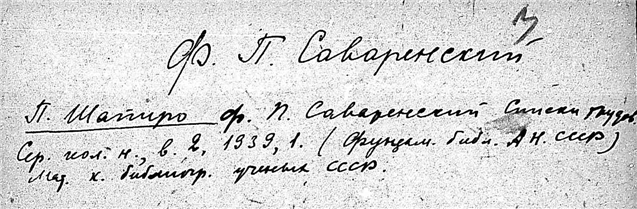 Ф. П. Саваренский
П. Шапиро Ф. П. Саваренский Списки трудов
Сер. геол. н., в. 2, 1939, 1. (Фундам. библ. АН СССР)
Мат. к. библиогр. ученых СССР.